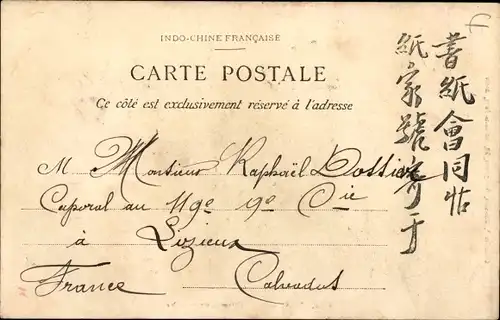 INDO-CHINE FRANÇAISE
CARTE POSTALE
Ce côté est exclusivement réservé à l'adresse
M Monsieur Raphaël Dossier
Caporal au 119e 9e Cie
à Lizieux
France Calvados
書紙會同帖
紙家號寄于